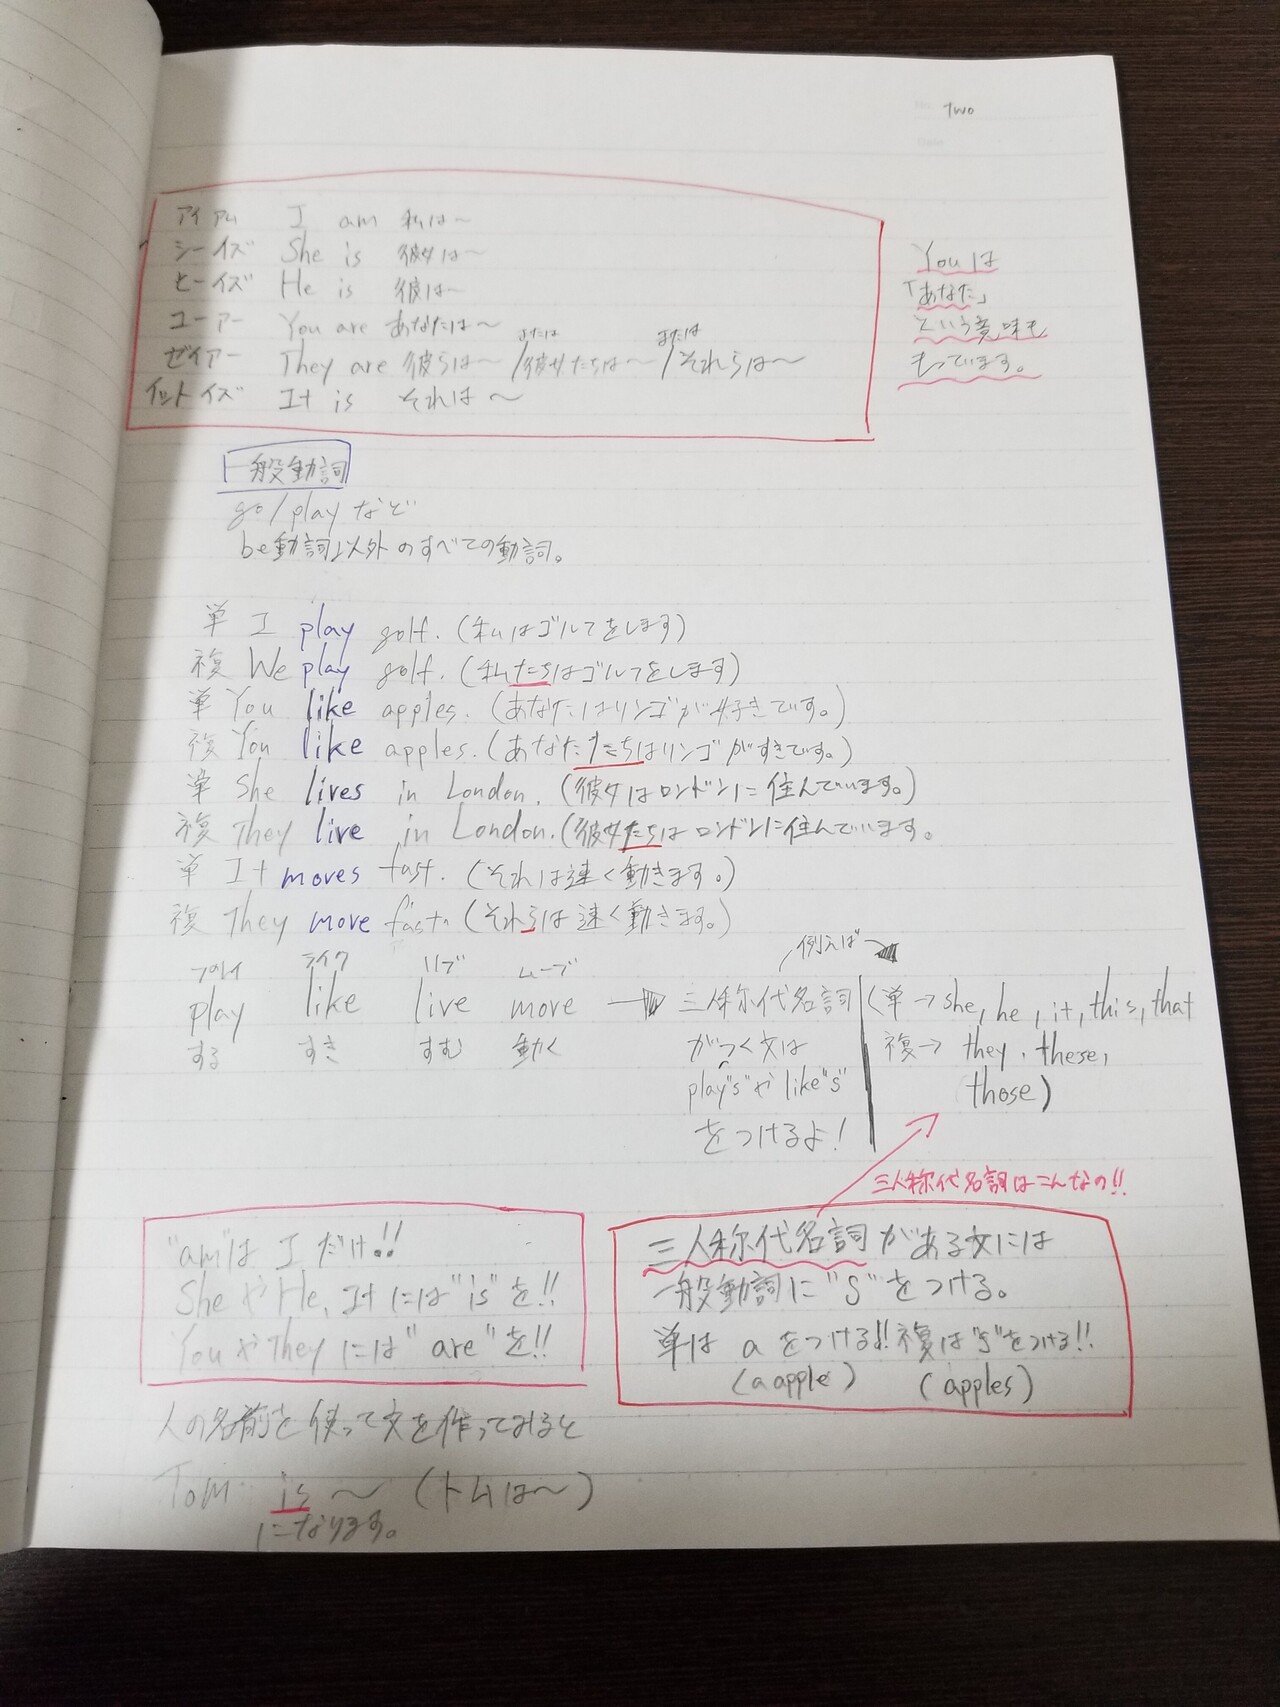 No. two
Date
アイアム I am 私は〜
シーイズ She is 彼女は〜
ヒーイズ He is 彼は〜
ユーアー You are あなたは〜
ゼイアー They are 彼らは〜 /または 彼女たちは〜 /または それらは〜
イットイズ It is それは〜
Youは
「あなた」
という意味も
もっています。
一般動詞
go/playなど
be動詞以外のすべての動詞。
単 I play golf. (私はゴルフをします)
複 We play golf. (私たちはゴルフをします)
単 You like apples. (あなたはリンゴが好きです。)
複 You like apples. (あなたたちはリンゴがすきです。)
単 She lives in London. (彼女はロンドンに住んでいます。)
複 They live in London. (彼女たちはロンドンに住んでいます。
単 It moves fast. (それは速く動きます。)
複 They move fast. (それらは速く動きます。)
プレイ ライク リブ ムーブ
play like live move → 三人称代名詞
する すき すむ 動く がつく文は
play"s"や like"s"
をつけるよ!
例えば→
(単→she, he, it, this, that
複→ they, these,
those)
三人称代名詞はこんなの!!
"am"は I だけ!!
SheやHe, Itには"is"を!!
YouやTheyには"are"を!!
三人称代名詞がある文には
一般動詞に"S"をつける。
単は a をつける!! 複は"s"をつける!!
(a apple) (apples)
人の名前を使って文を作ってみると
Tom is 〜 (トムは〜)
になります。